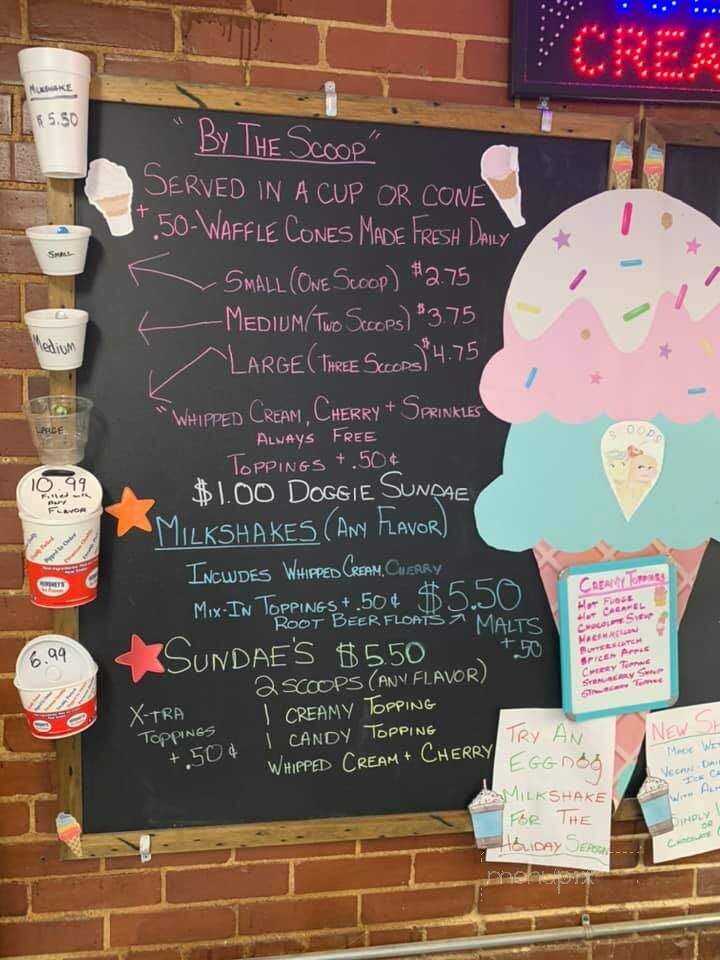 CREA
MILKSHAKE
$5.50
SMALL
Medium
LARGE
10.99
Filled with
ANY
FLAVOR
HERSHEY'S
6.99
"BY THE SCOOP"
SERVED IN A CUP OR CONE
+.50-WAFFLE CONES MADE FRESH DAILY
SMALL (ONE SCOOP) $2.75
MEDIUM (TWO SCOOPS) $3.75
LARGE (THREE SCOOPS) $4.75
"WHIPPED CREAM, CHERRY + SPRINKLES
ALWAYS FREE
TOPPINGS +.50¢
$1.00 DOGGIE SUNDAE
MILKSHAKES (ANY FLAVOR)
INCLUDES WHIPPED CREAM, CHERRY
MIX-IN TOPPINGS +.50¢ $5.50
ROOT BEER FLOATS MALTS
+.50
SUNDAE'S $5.50
2 SCOOPS (ANY FLAVOR)
1 CREAMY TOPPING
1 CANDY TOPPING
WHIPPED CREAM + CHERRY
X-TRA
TOPPINGS
+.50¢
SCOOPS
CREAMY TOPPINGS
HOT FUDGE
HOT CARAMEL
CHOCOLATE SYRUP
MARSHMELLOW
BUTTERSCOTCH
SPICED APPLE
CHERRY TOPPING
STRAWBERRY SYRUP
STRAWBERRY TOPPING
TRY AN
EGGNOG
MILKSHAKE
FOR THE
HOLIDAY SEASON
NEW
MADE WIT
VEGAN-DAI
ICE C
WITH ALM
SIMPLY
OR
CHOCOLATE
menupix